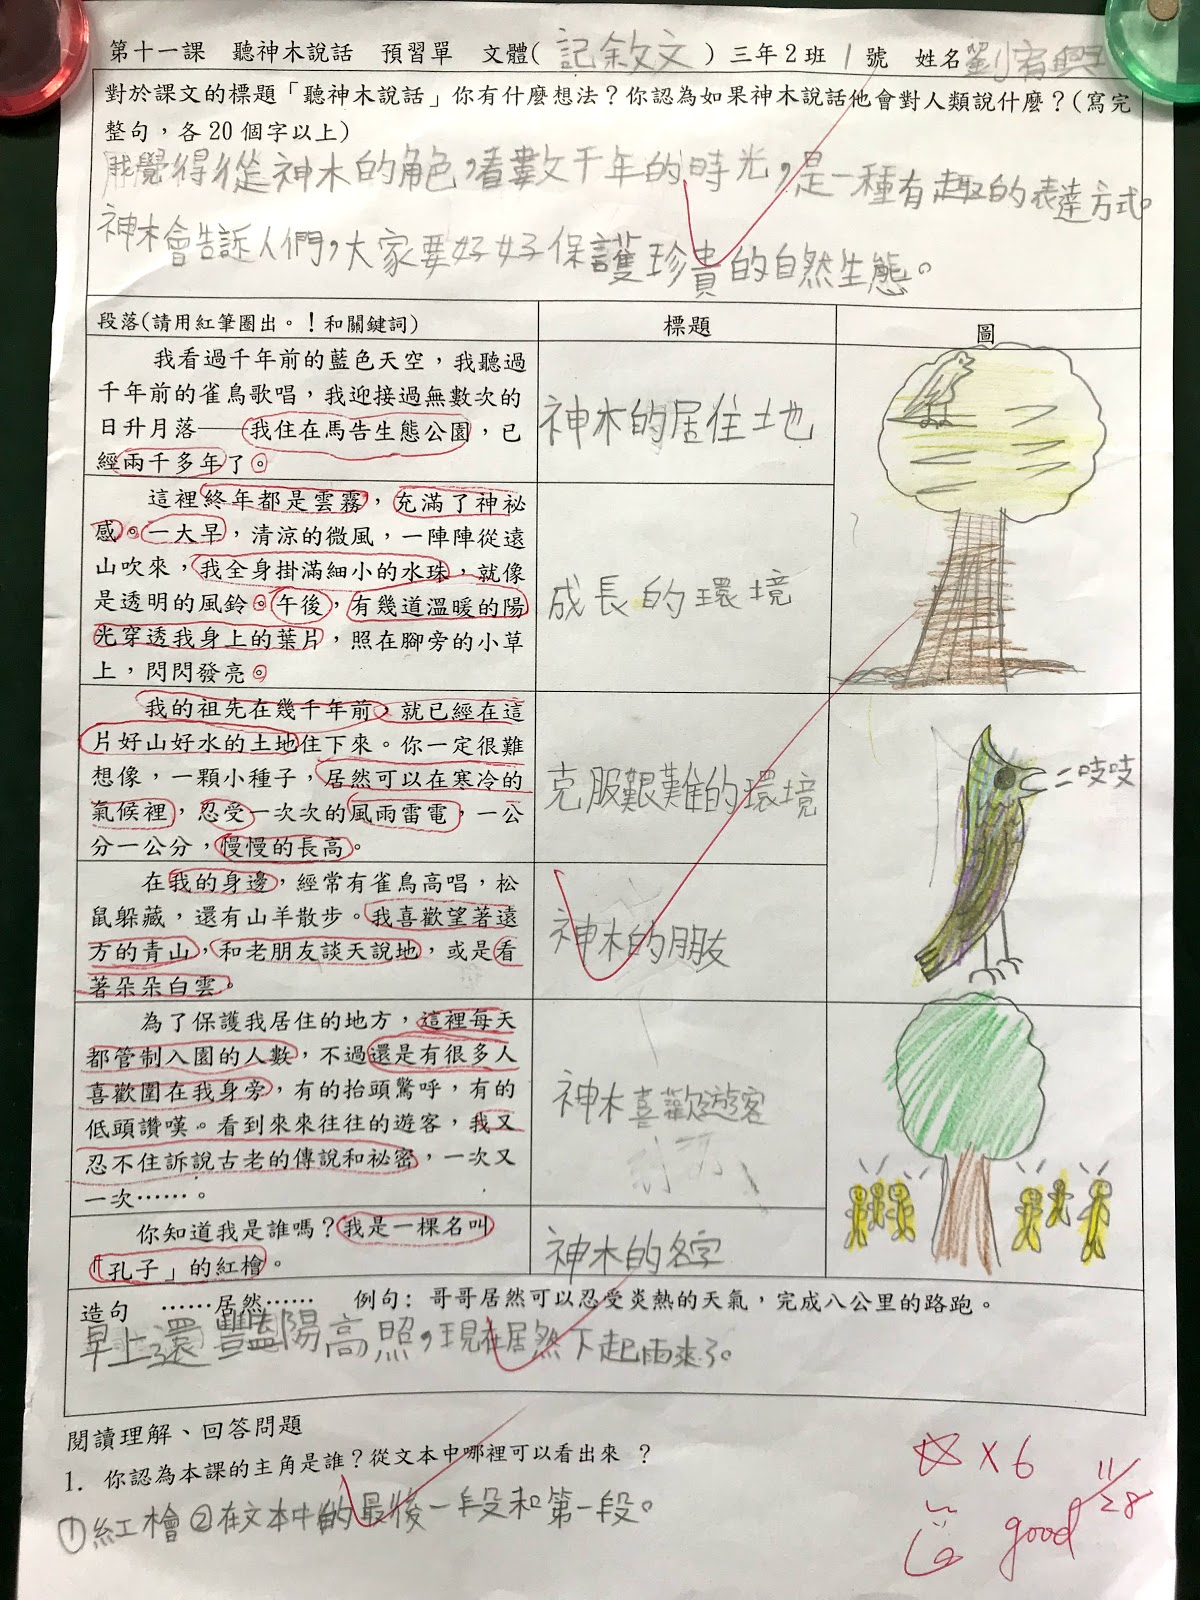 第十一課 聽神木說話 預習單 文體(記敘文)三年2班1號 姓名劉宥
對於課文的標題「聽神木說話」你有什麼想法？你認為如果神木說話他會對人類說什麼？(寫完
整句，各20個字以上)
我覺得從神木的角色，看數千年的時光，是一種有趣的表達方式。
神木會告訴人們，大家要好好保護珍貴的自然生態。
段落(請用紅筆圈出。！和關鍵詞) 標題 圖
我看過千年前的藍色天空，我聽過
千年前的雀鳥歌唱，我迎接過無數次的
日升月落——我住在馬告生態公園，已
經兩千多年了。
神木的居住地
這裡終年都是雲霧，充滿了神祕
感。一大早，清涼的微風，一陣陣從遠
山吹來，我全身掛滿細小的水珠，就像
是透明的風鈴。午後，有幾道溫暖的陽
光穿透我身上的葉片，照在腳旁的小草
上，閃閃發亮。
成長的環境
我的祖先在幾千年前，就已經在這
片好山好水的土地住下來。你一定很難
想像，一顆小種子，居然可以在寒冷的
氣候裡，忍受一次次的風雨雷電，一公
分一公分，慢慢的長高。
克服艱難的環境
吱吱
在我的身邊，經常有雀鳥高唱，松
鼠躲藏，還有山羊散步。我喜歡望著遠
方的青山，和老朋友談天說地，或是看
著朵朵白雲。
神木的朋友
為了保護我居住的地方，這裡每天
都管制入園的人數，不過還是有很多人
喜歡圍在我身旁，有的抬頭驚呼，有的
低頭讚嘆。看到來來往往的遊客，我又
忍不住訴說古老的傳說和祕密，一次又
一次……。
神木喜歡遊客
你知道我是誰嗎？我是一棵名叫
「孔子」的紅檜。
神木的名字
造句 ……居然…… 例句：哥哥居然可以忍受炎熱的天氣，完成八公里的路跑。
早上還豔陽高照，現在居然下起雨來了。
閱讀理解、回答問題
1. 你認為本課的主角是誰？從文本中哪裡可以看出來 ？
①紅檜②在文本中的最後一段和第一段。
☆×6
11/28
good